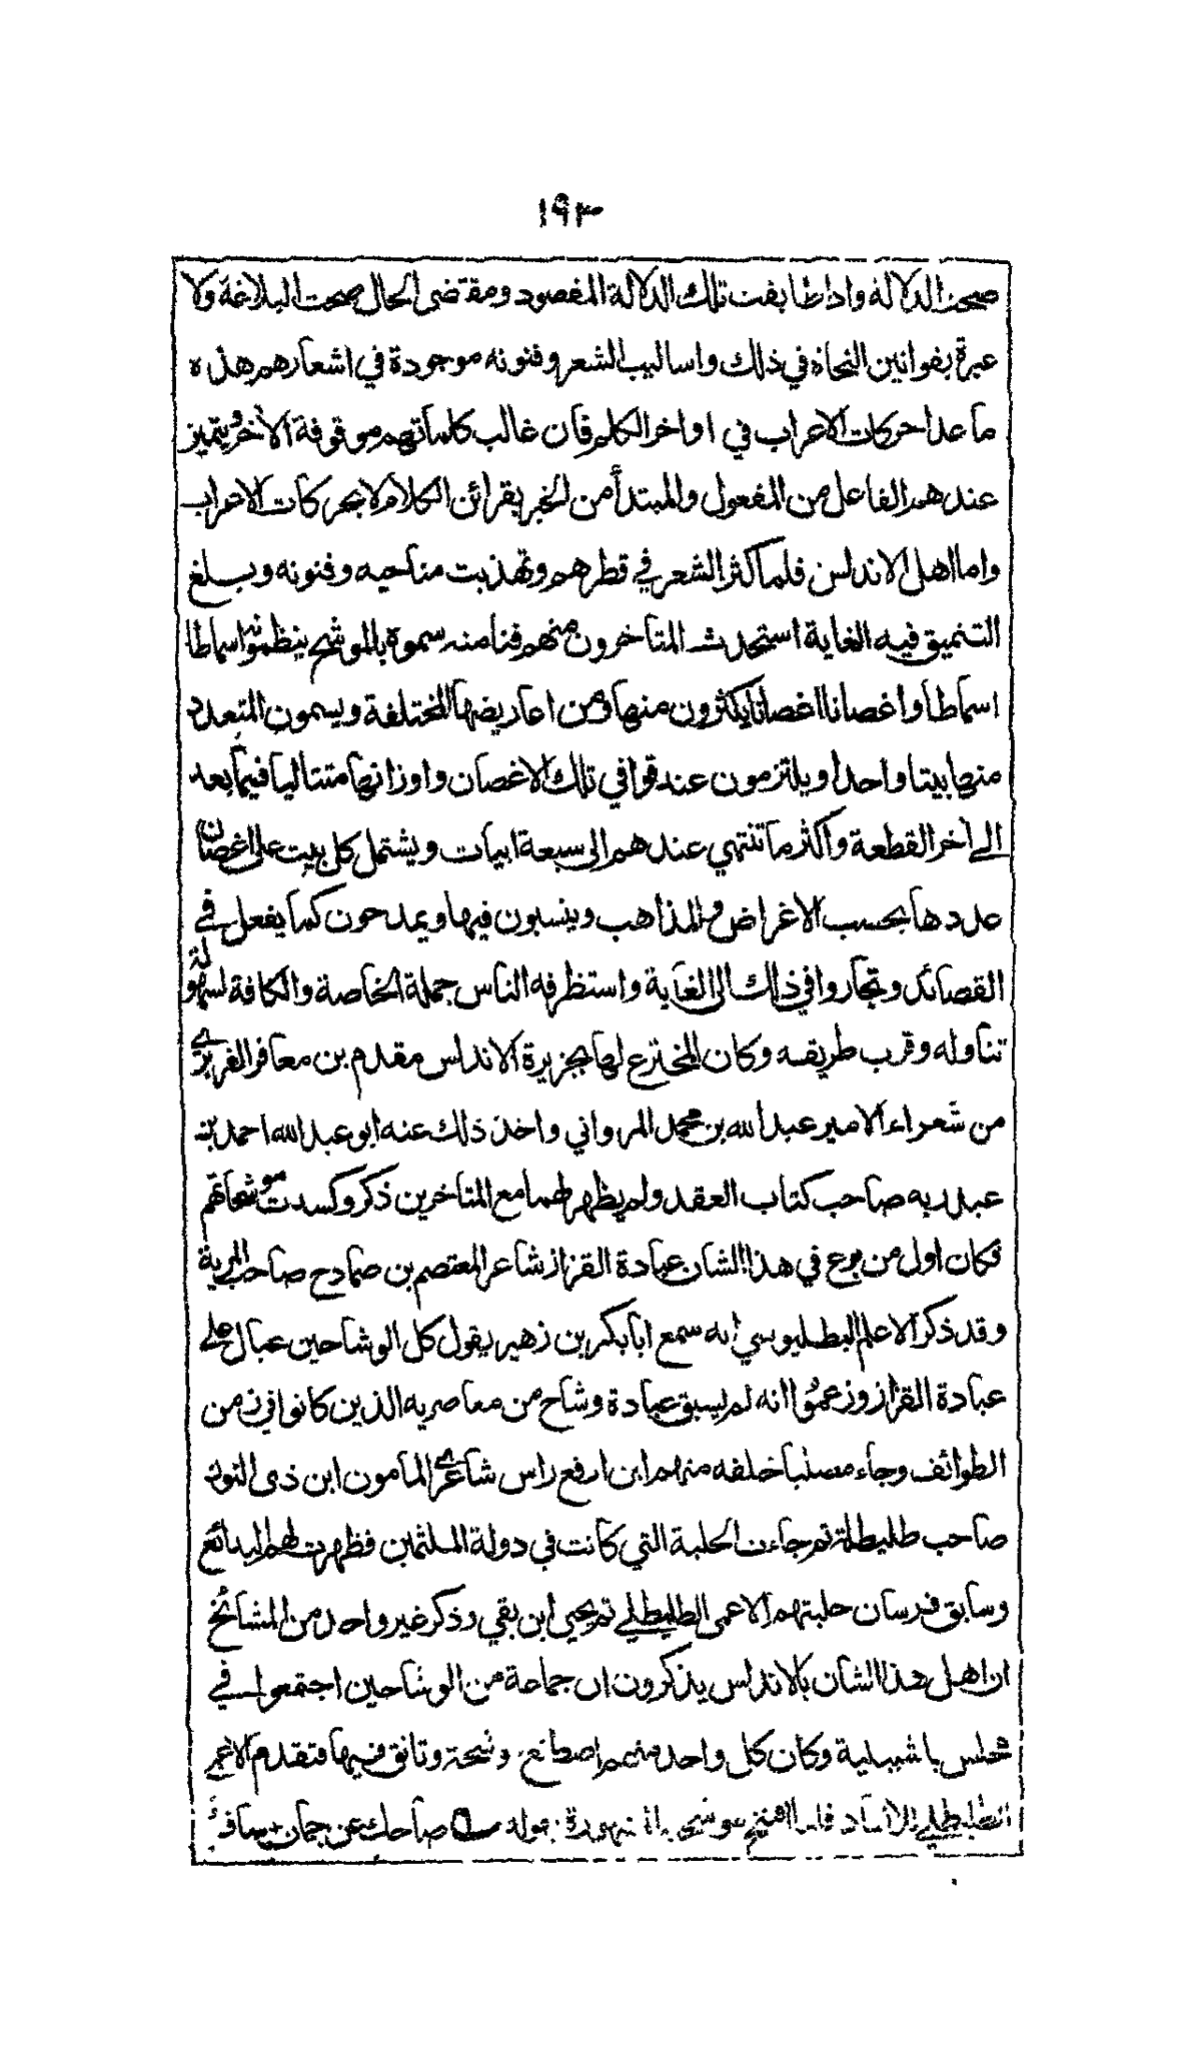 ١٩٣
صحت الدلالة واذا طابقت تلك الدلالة المقصود ومقتضى الحال صحت البلاغة ولا
عبرة بقوانين النحاة في ذلك واساليب الشعر وفنونه موجودة في اشعارهم هذه
ما عدا حركات الاعراب في اواخر الكلم فان غالب كلماتهم موقوفة الآخر ويتميز
عندهم الفاعل من المفعول والمبتدأ من الخبر بقرائن الكلام لا بحركات الاعراب
واما اهل الاندلس فلما كثر الشعر في قطرهم وتهذبت مناحيه وفنونه وبلغ
التنميق فيه الغاية استحدث المتاخرون منهم فنا منه سموه بالموشح ينظمونه اسماطا
اسماطا واغصانا اغصانا يكثرون منها ومن اعاريضها المختلفة ويسمون المتعدد
منها بيتا واحدا ويلتزمون عند قوافي تلك الاغصان واوزانها متتاليا فيما بعد
الى آخر القطعة واكثر ما تنتهي عندهم الى سبعة ابيات ويشتمل كل بيت على اغصان
عددها بحسب الاغراض والمذاهب وينسبون فيها ويمدحون كما يفعل في
القصائد وتجاروا في ذلك الى الغاية واستظرفه الناس جملة الخاصة والكافة لسهولة
تناوله وقرب طريقه وكان المخترع لها بجزيرة الاندلس مقدم بن معافر الفريري
من شعراء الامير عبد الله بن محمد المرواني واخذ ذلك عنه ابو عبد الله احمد بن
عبد ربه صاحب كتاب العقد ولم يظهر لهما مع المتاخرين ذكر وكسدت موشحاتهم
فكان اول من برع في هذا الشان عبادة القزاز شاعر المعتصم بن صمادح صاحب المرية
وقد ذكر الاعلم البطليوسي انه سمع ابا بكر بن زهير يقول كل الوشاحين عيال على
عبادة القزاز وزعموا انه لم يسبق عبادة وشاح من معاصريه الذين كانوا في زمن
الطوائف وجاء مصليا خلفه منهم ابن ارفع راس شاعر المامون ابن ذى النون
صاحب طليطلة ثم جاءت الحلبة التي كانت في دولة الملثمين فظهرت لهم البدائع
وسابق فرسان حلبتهم الاعمى الطليطلي ثم يحيى ابن بقي وذكر غير واحد من المشائخ
ان اهل هذا الشان بالاندلس يذكرون ان جماعة من الوشاحين اجتمعوا في
مجلس باشبيلية وكان كل واحد منهم اصطنع وشحة وتانق فيها فتقدم الاعمى
الطليطلي للانشاد فلما افتتح موشحه المشهورة بقوله ضاحك عن جمان + سافر